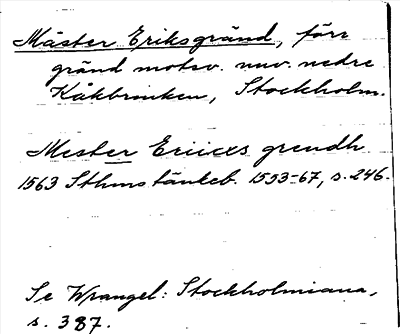 Mäster Eriksgränd, förr
gränd motsv. nuv. nedre
Kåkbrinken, Stockholm.
Mester Ericxs grendh
1563 Sthms tänkeb. 1553-67, s. 246.
Se Wrangel: Stockholmiana,
s. 387.